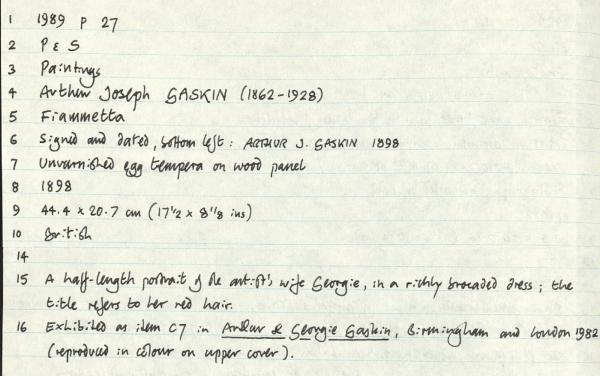 1 1989 P 27
2 P & S
3 Paintings
4 Arthur Joseph GASKIN (1862-1928)
5 Fiammetta
6 Signed and dated, bottom left: ARTHUR J. GASKIN 1898
7 Unvarnished egg tempera on wood panel
8 1898
9 44.4 x 20.7 cm (17 1/2 x 8 1/8 ins)
10 British
14
15 A half-length portrait of the artist's wife Georgie, in a richly brocaded dress; the
title refers to her red hair.
16 Exhibited as item C7 in Arthur & Georgie Gaskin, Birmingham and London 1982
(reproduced in colour on upper cover).